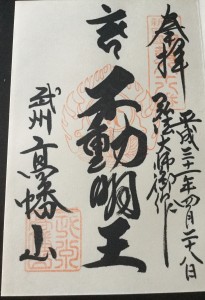 奉拝
平成三十一年四月二十八日
弘法大師御作
不動明王
武州 高幡山